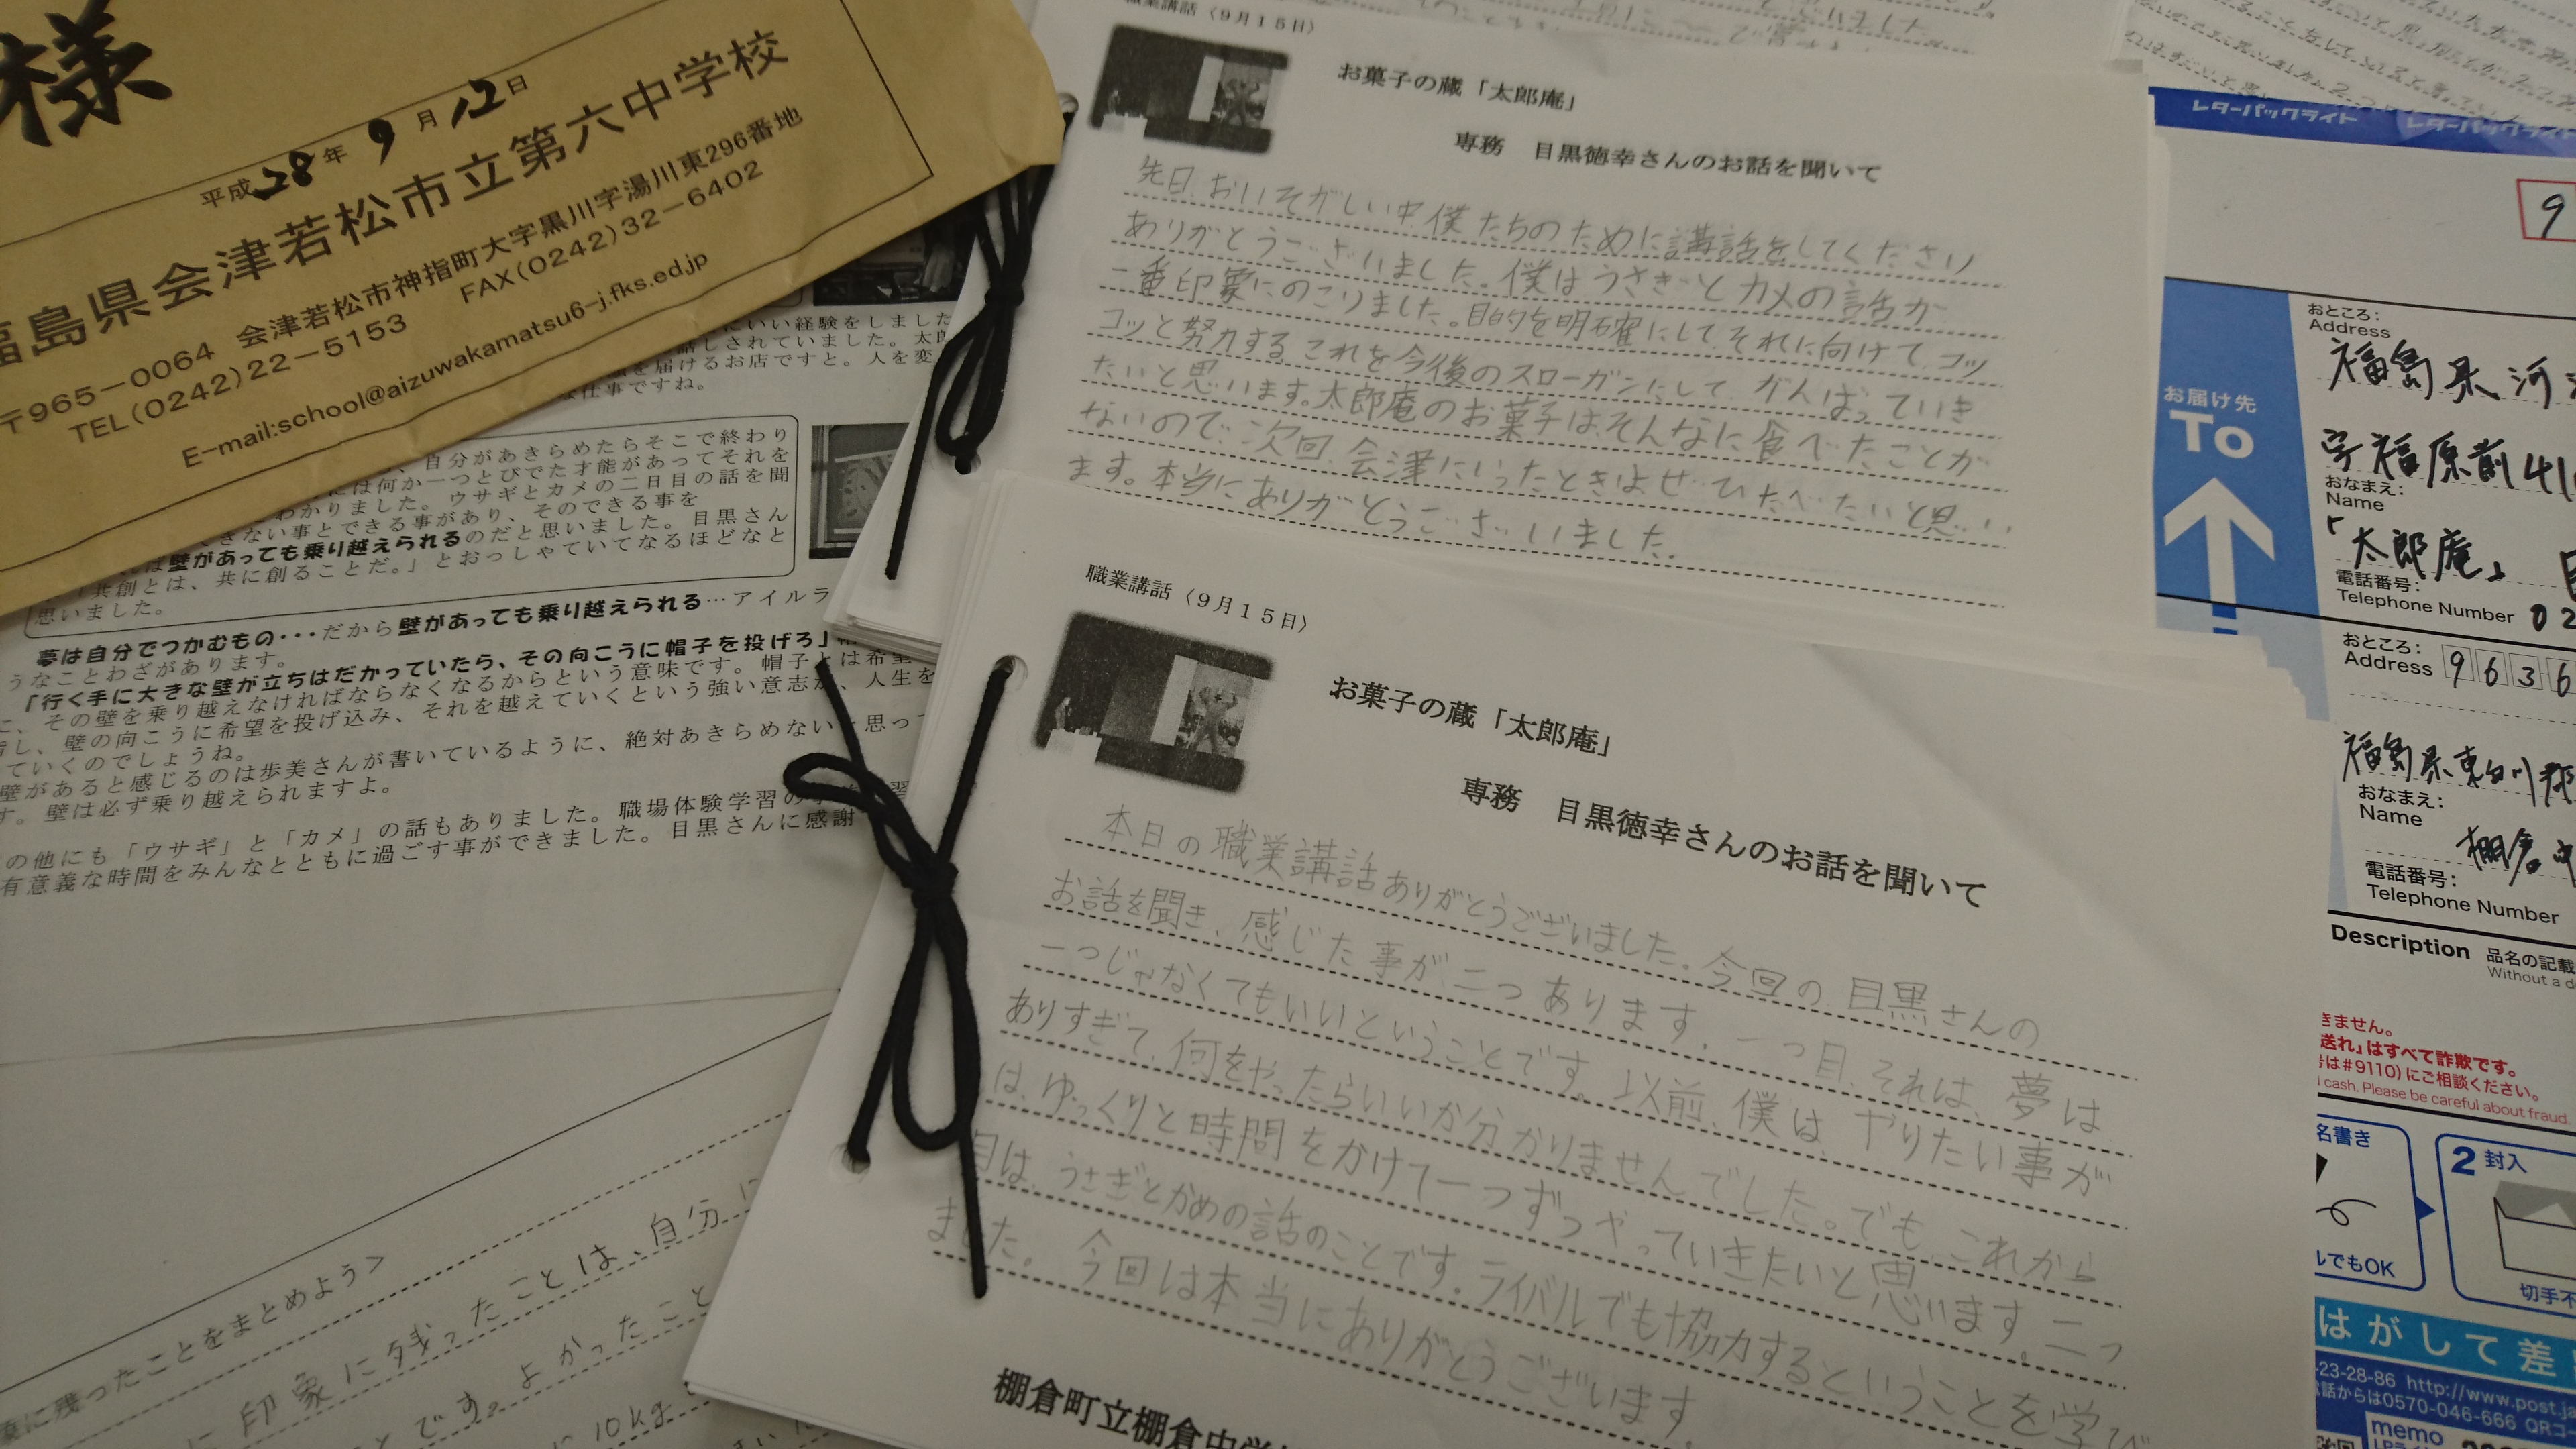 様
平成28年9月12日
福島県会津若松市立第六中学校
〒965-0064 会津若松市神指町大字黒川字湯川東296番地
TEL(0242)22-5153 FAX(0242)32-6402
E-mail:school@aizuwakamatsu6-j.fks.ed.jp
にいい経験をしました
話しされていました。太郎
を届けるお店ですと。人を変
仕事ですね。
、自分があきらめたらそこで終わり
には何か一つとびでた才能があってそれを
わかりました。ウサギとカメの二日目の話を聞
きない事とできる事があり、そのできる事を
は壁があっても乗り越えられるのだと思いました。目黒さん
「共創とは、共に創ることだ。」とおっしゃていてなるほどなと
思いました。
夢は自分でつかむもの・・・だから壁があっても乗り越えられる…アイルラ
うなことわざがあります。
「行く手に大きな壁が立ちはだかっていたら、その向こうに帽子を投げろ」
、その壁を乗り越えなければならなくなるからという意味です。帽子とは希望
し、壁の向こうに希望を投げ込み、それを越えていくという強い意志が、人生を
ていくのでしょうね。
壁があると感じるのは歩美さんが書いているように、絶対あきらめないと思って
す。壁は必ず乗り越えられますよ。
の他にも「ウサギ」と「カメ」の話もありました。職場体験学習の
有意義な時間をみんなとともに過ごす事ができました。目黒さんに感謝
に残ったことをまとめよう>
印象に残ったことは、自分
です。よかったこと
10kg
職業講話〈9月15日〉
お菓子の蔵「太郎庵」
専務 目黒徳幸さんのお話を聞いて
先日、おいそがしい中僕たちのために講話をしてくださり
ありがとうございました。僕はうさぎとカメの話が
一番印象にのこりました。目的を明確にして、それに向けて、コツ
コツと努力する、これを今後のスローガンにして、がんばっていき
たいと思います。太郎庵のお菓子は、そんなに食べたことが
ないので、次回、会津にいったときはぜひたべたいと思い
ます。本当にありがとうございました。
職業講話〈9月15日〉
お菓子の蔵「太郎庵」
専務 目黒徳幸さんのお話を聞いて
本日の職業講話ありがとうございました。今回の目黒さんの
お話を聞き、感じた事が二つあります。一つ目、それは、夢は
一つじゃなくてもいいということです。以前、僕は、やりたい事が
ありすぎて、何をやったらいいか分かりませんでした。でも、これから
は、ゆっくりと時間をかけて一つずつやっていきたいと思います。二つ
目は、うさぎとかめの話のことです。ライバルでも協力するということを学び
ました。今回は本当にありがとうございます。
棚倉町立棚倉中学
レターパックライト レターパックライト
9
お届け先
To
おところ:
Address
福島県河
字福原前41
おなまえ:
Name
「太郎庵」
電話番号:
Telephone Number 02
おところ:
Address 9636
福島県東白川郡
おなまえ:
Name
棚倉
電話番号:
Telephone Number
Description 品名の記載
Without a d
きません。
送れ」はすべて詐欺です。
は#9110)にご相談ください。
cash. Please be careful about fraud.
名書き
でもOK
2 封入
切手不
はがして差
-23-28-86 http://www.post.ja
電話からは0570-046-666 QRコ
memo